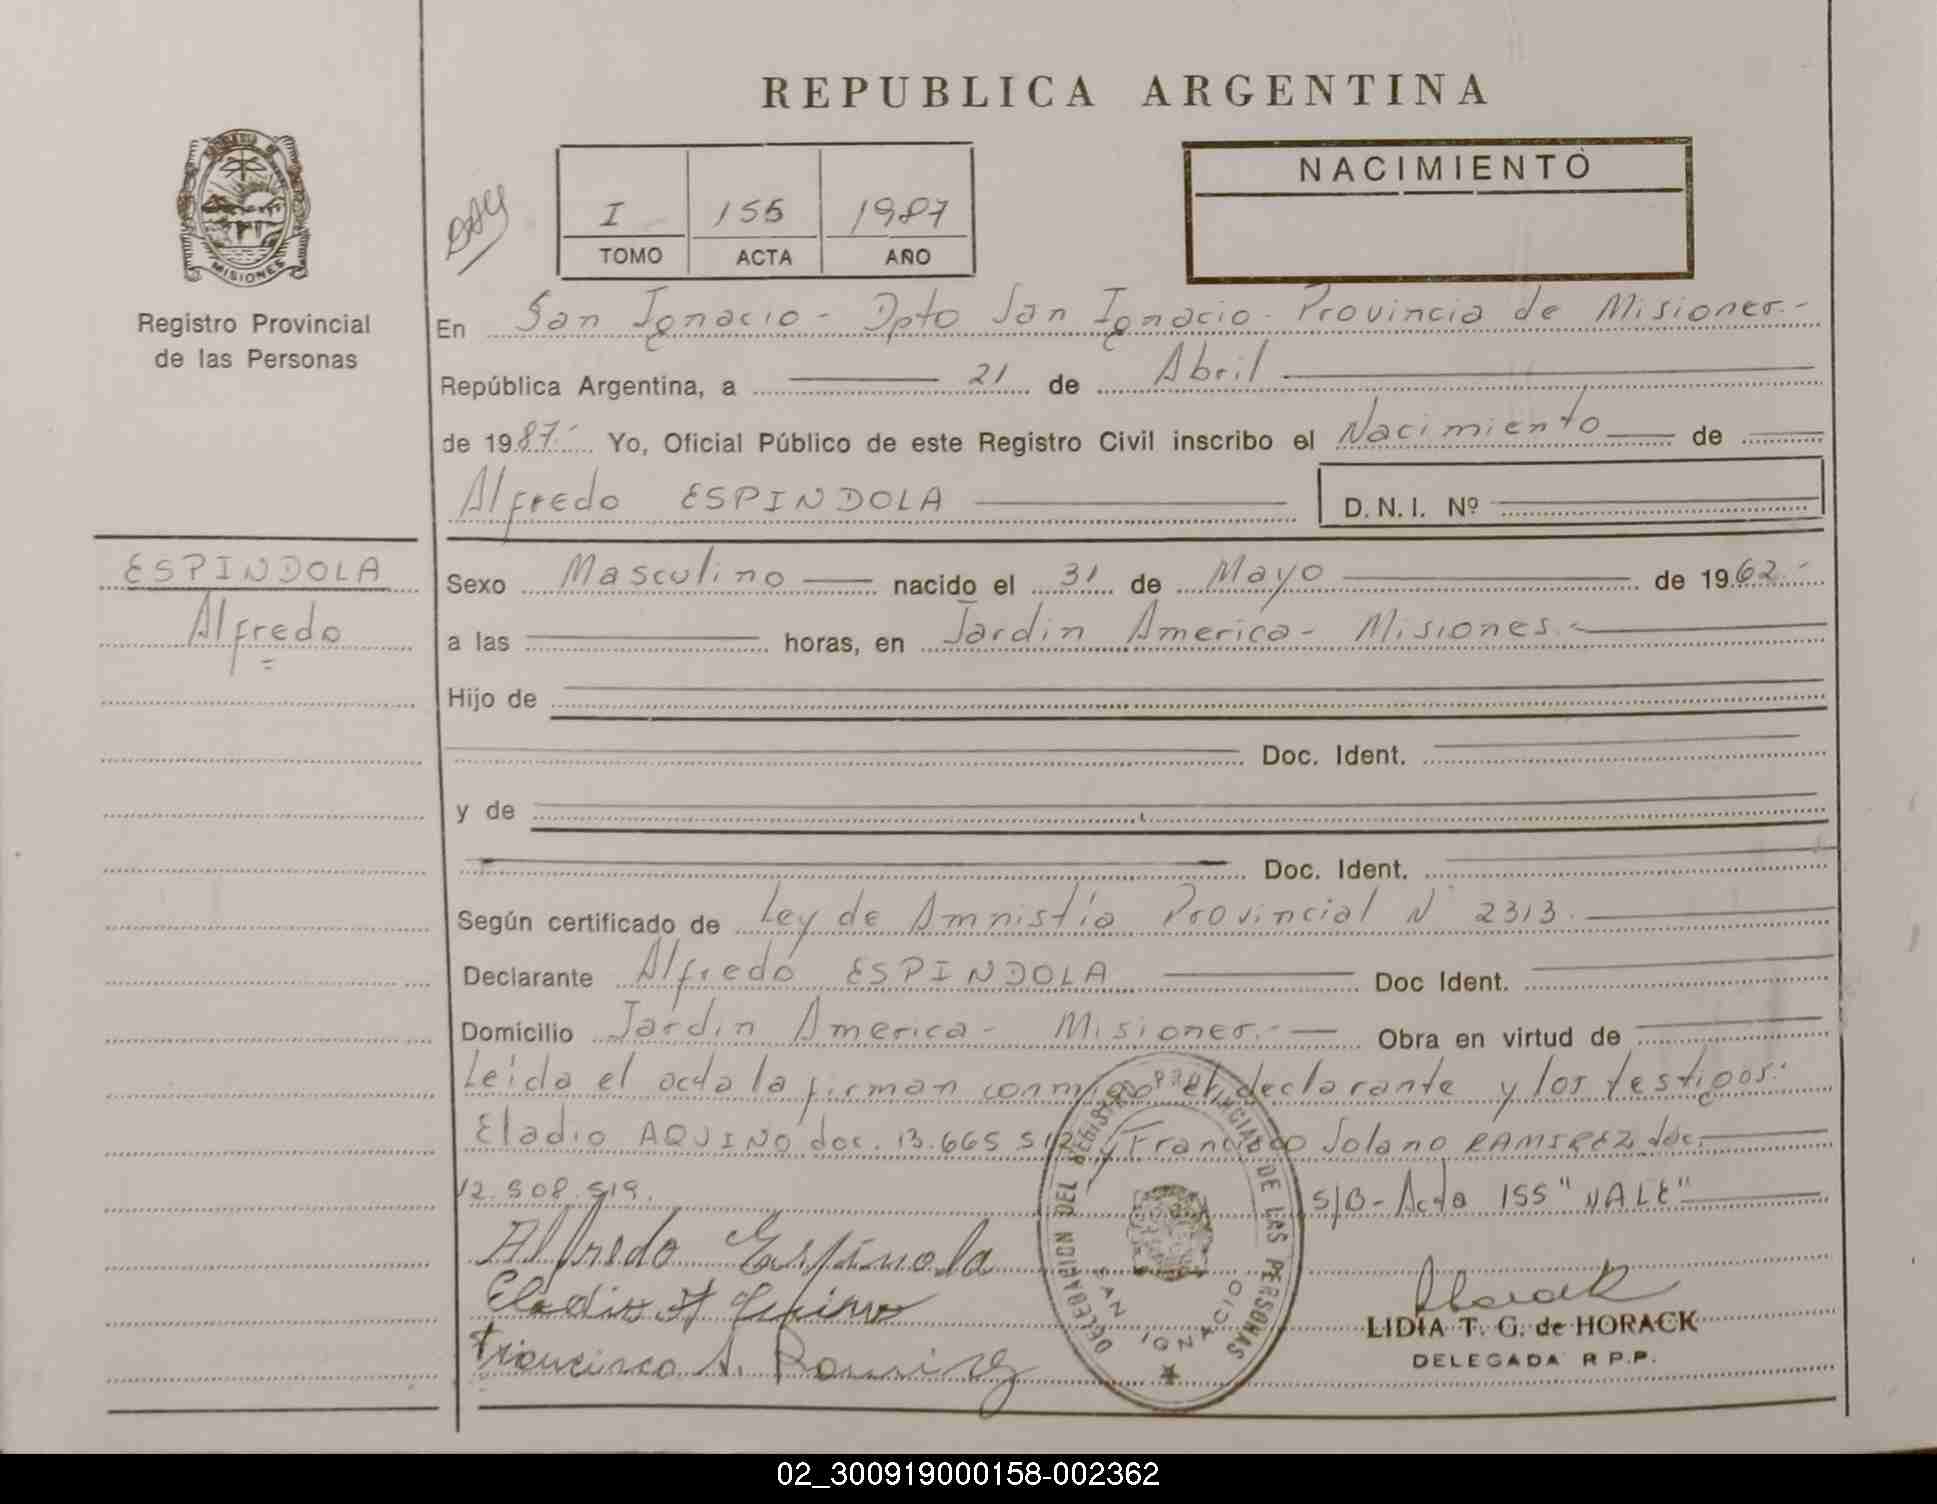 REPUBLICA ARGENTINA
MISIONES
Registro Provincial
de las Personas
I 155 1987
TOMO ACTA AÑO
NACIMIENTO
En San Ignacio - Dpto San Ignacio - Provincia de Misiones.-
República Argentina, a 21 de Abril
de 1987.- Yo, Oficial Público de este Registro Civil inscribo el Nacimiento de
Alfredo ESPINDOLA D.N.I. Nº
ESPINDOLA
Alfredo
Sexo Masculino nacido el 31 de Mayo de 1962.-
a las horas, en Jardin America - Misiones.-
Hijo de
Doc. Ident.
y de
Doc. Ident.
Según certificado de Ley de Amnistía Provincial Nº 2313.
Declarante Alfredo ESPINDOLA Doc Ident.
Domicilio Jardin America - Misiones.- Obra en virtud de
Leida el acta la firman conmigo el declarante y los testigos:
Eladio AQUINO doc. 13.665.512 y Francisco Solano RAMIREZ doc.
12.508.519. S/B - Acta 155 "VALE"
Alfredo Espínola
Eladio A Aquino
Francisco S. Ramirez
DELEGACION DEL REGISTRO PROVINCIAL DE LAS PERSONAS
SAN IGNACIO
LIDIA T. G. de HORACK
DELEGADA R.P.P.
02_300919000158-002362